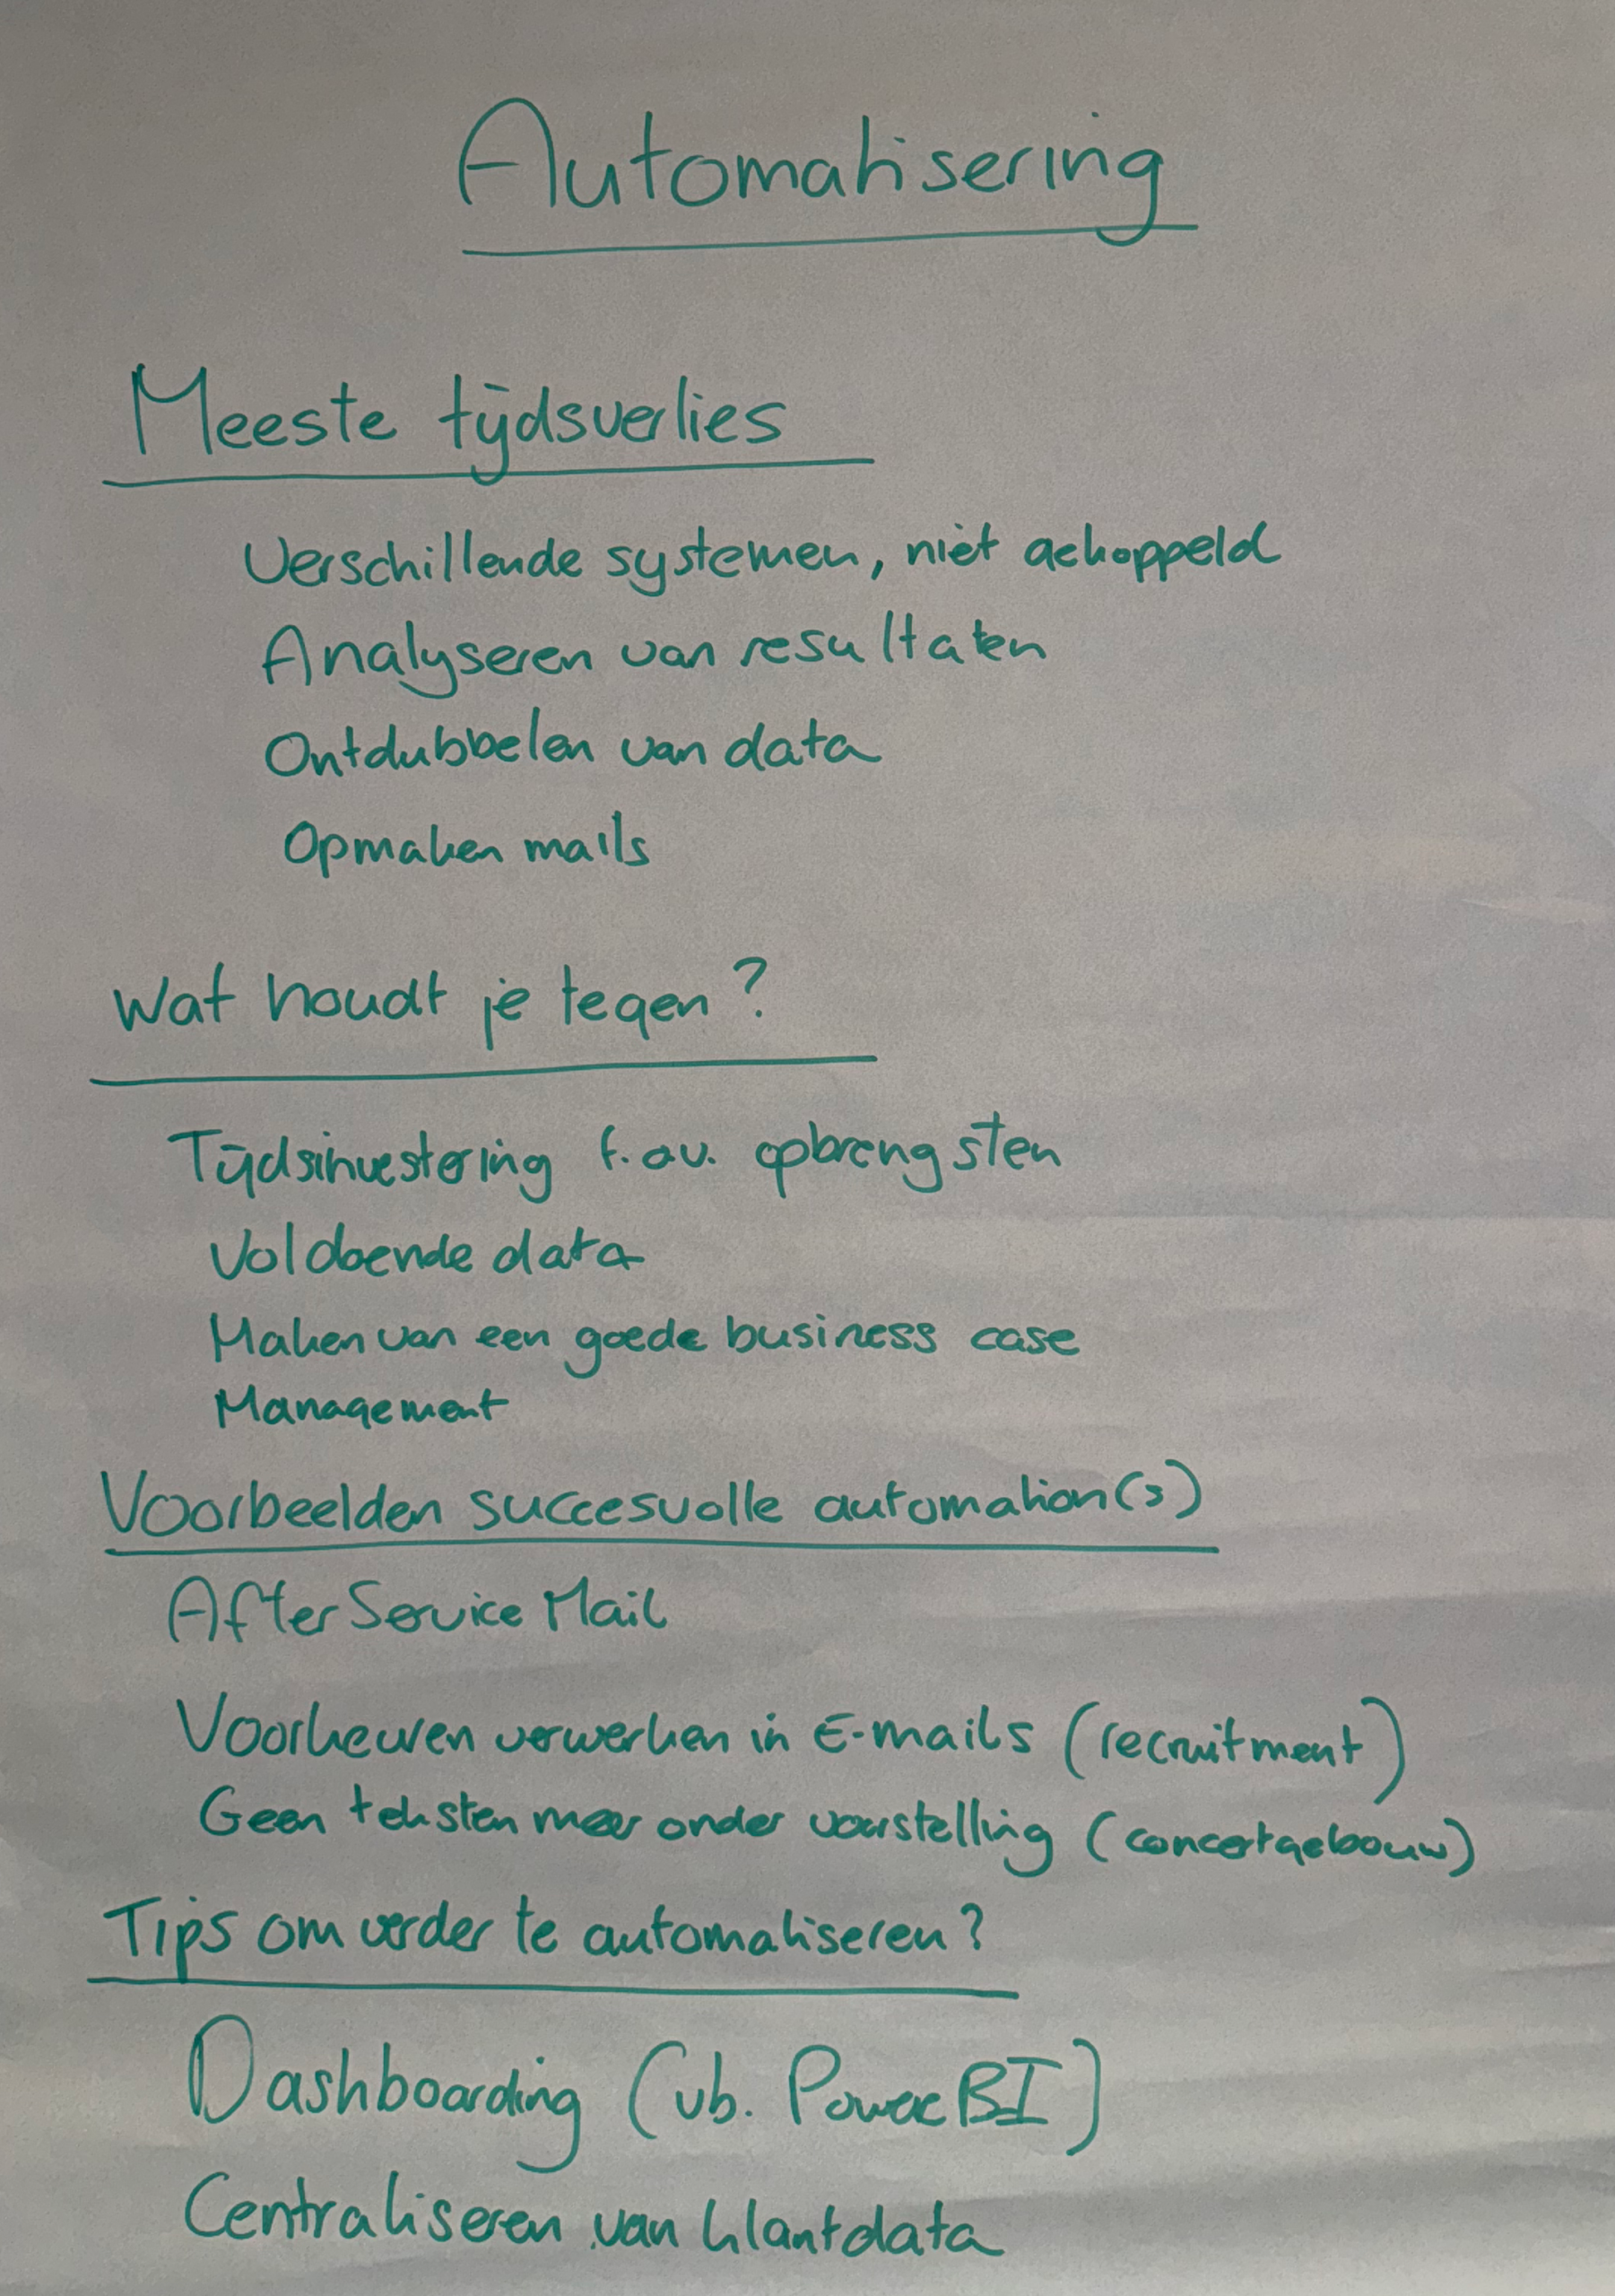 Automatisering
Meeste tijdsverlies
Verschillende systemen, niet gekoppeld
Analyseren van resultaten
Ontdubbelen van data
Opmaken mails
Wat houdt je tegen?
Tijdsinvestering t.o.v. opbrengsten
Voldoende data
Maken van een goede business case
Management
Voorbeelden succesvolle automation(s)
After Service Mail
Voorkeuren verwerken in E-mails (recruitment)
Geen teksten meer onder voorstelling (concertgebouw)
Tips om verder te automatiseren?
Dashboarding (vb. Power BI)
Centraliseren van klantdata